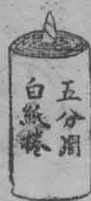 五分闊
白紙捲